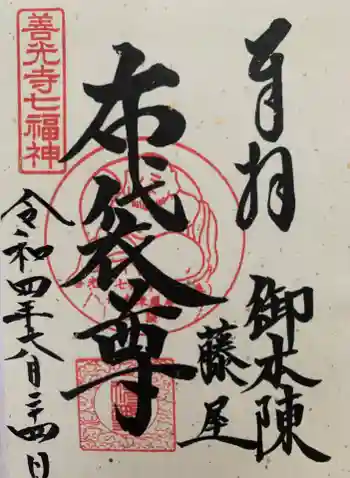 奉拝
御本陳
藤屋
布袋尊
善光寺七福神
令和四年八月二十四日